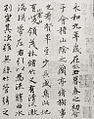 永和九年歲在癸丑暮春之初會
于會稽山陰之蘭亭脩稧事
也群賢畢至少長咸集此地
有崇山峻領茂林脩竹又有清流激
湍暎帶左右引以為流觴曲水
列坐其次雖無絲竹管弦之